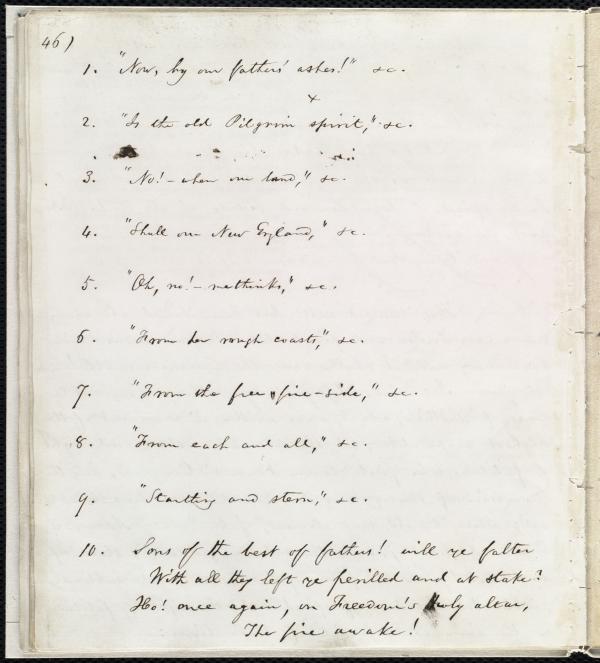 46)
1. "Now, by our fathers' ashes!" &c.
x
2. "Is the old Pilgrim spirit," &c.
3. "No! – when our land," &c.
4. "Shall our New England," &c.
5. "Oh, no! – methinks," &c.
6. "From her rough coasts," &c.
7. "From the free fire-side," &c.
8. "From each and all," &c.
9. "Startling and stern," &c.
10. Sons of the best of fathers! will ye falter
With all they left ye perilled and at stake?
Ho! once again, on Freedom's holy altar,
The fire awake!